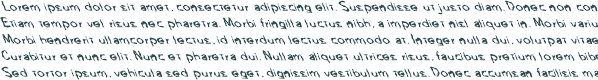 Lorem ipsum dolor sit amet, consectetur adipiscing elit. Suspendisse ut justo diam. Donec non con
Etiam tempor vel risus nec pharetra. Morbi fringilla luctus nibh, a imperdiet nisl aliquet in. Morbi variu
Morbi hendrerit ullamcorper lectus, id interdum lectus commodo at. Integer nulla dui, volutpat vitae
Curabitur et nunc elit. Nunc et pharetra dui. Nullam aliquet mauris risus, faucibus pretium lorem bibe
Sed tortor ipsum, vehicula sed purus eget, dignissim vestibulum tellus. Donec accumsan facilisis ma